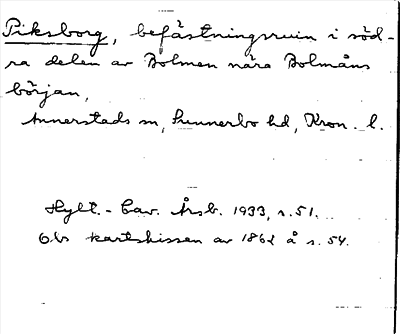 Piksborg, befästningsruin i söd-
ra delen av Bolmen nära Bolmåns
början,
Annerstads sn, Sunnerbo hd, Kron. l.
Hylt.-Cav. Årsb. 1933, s. 51.
Obs kartskissen av 1862 å s. 54.